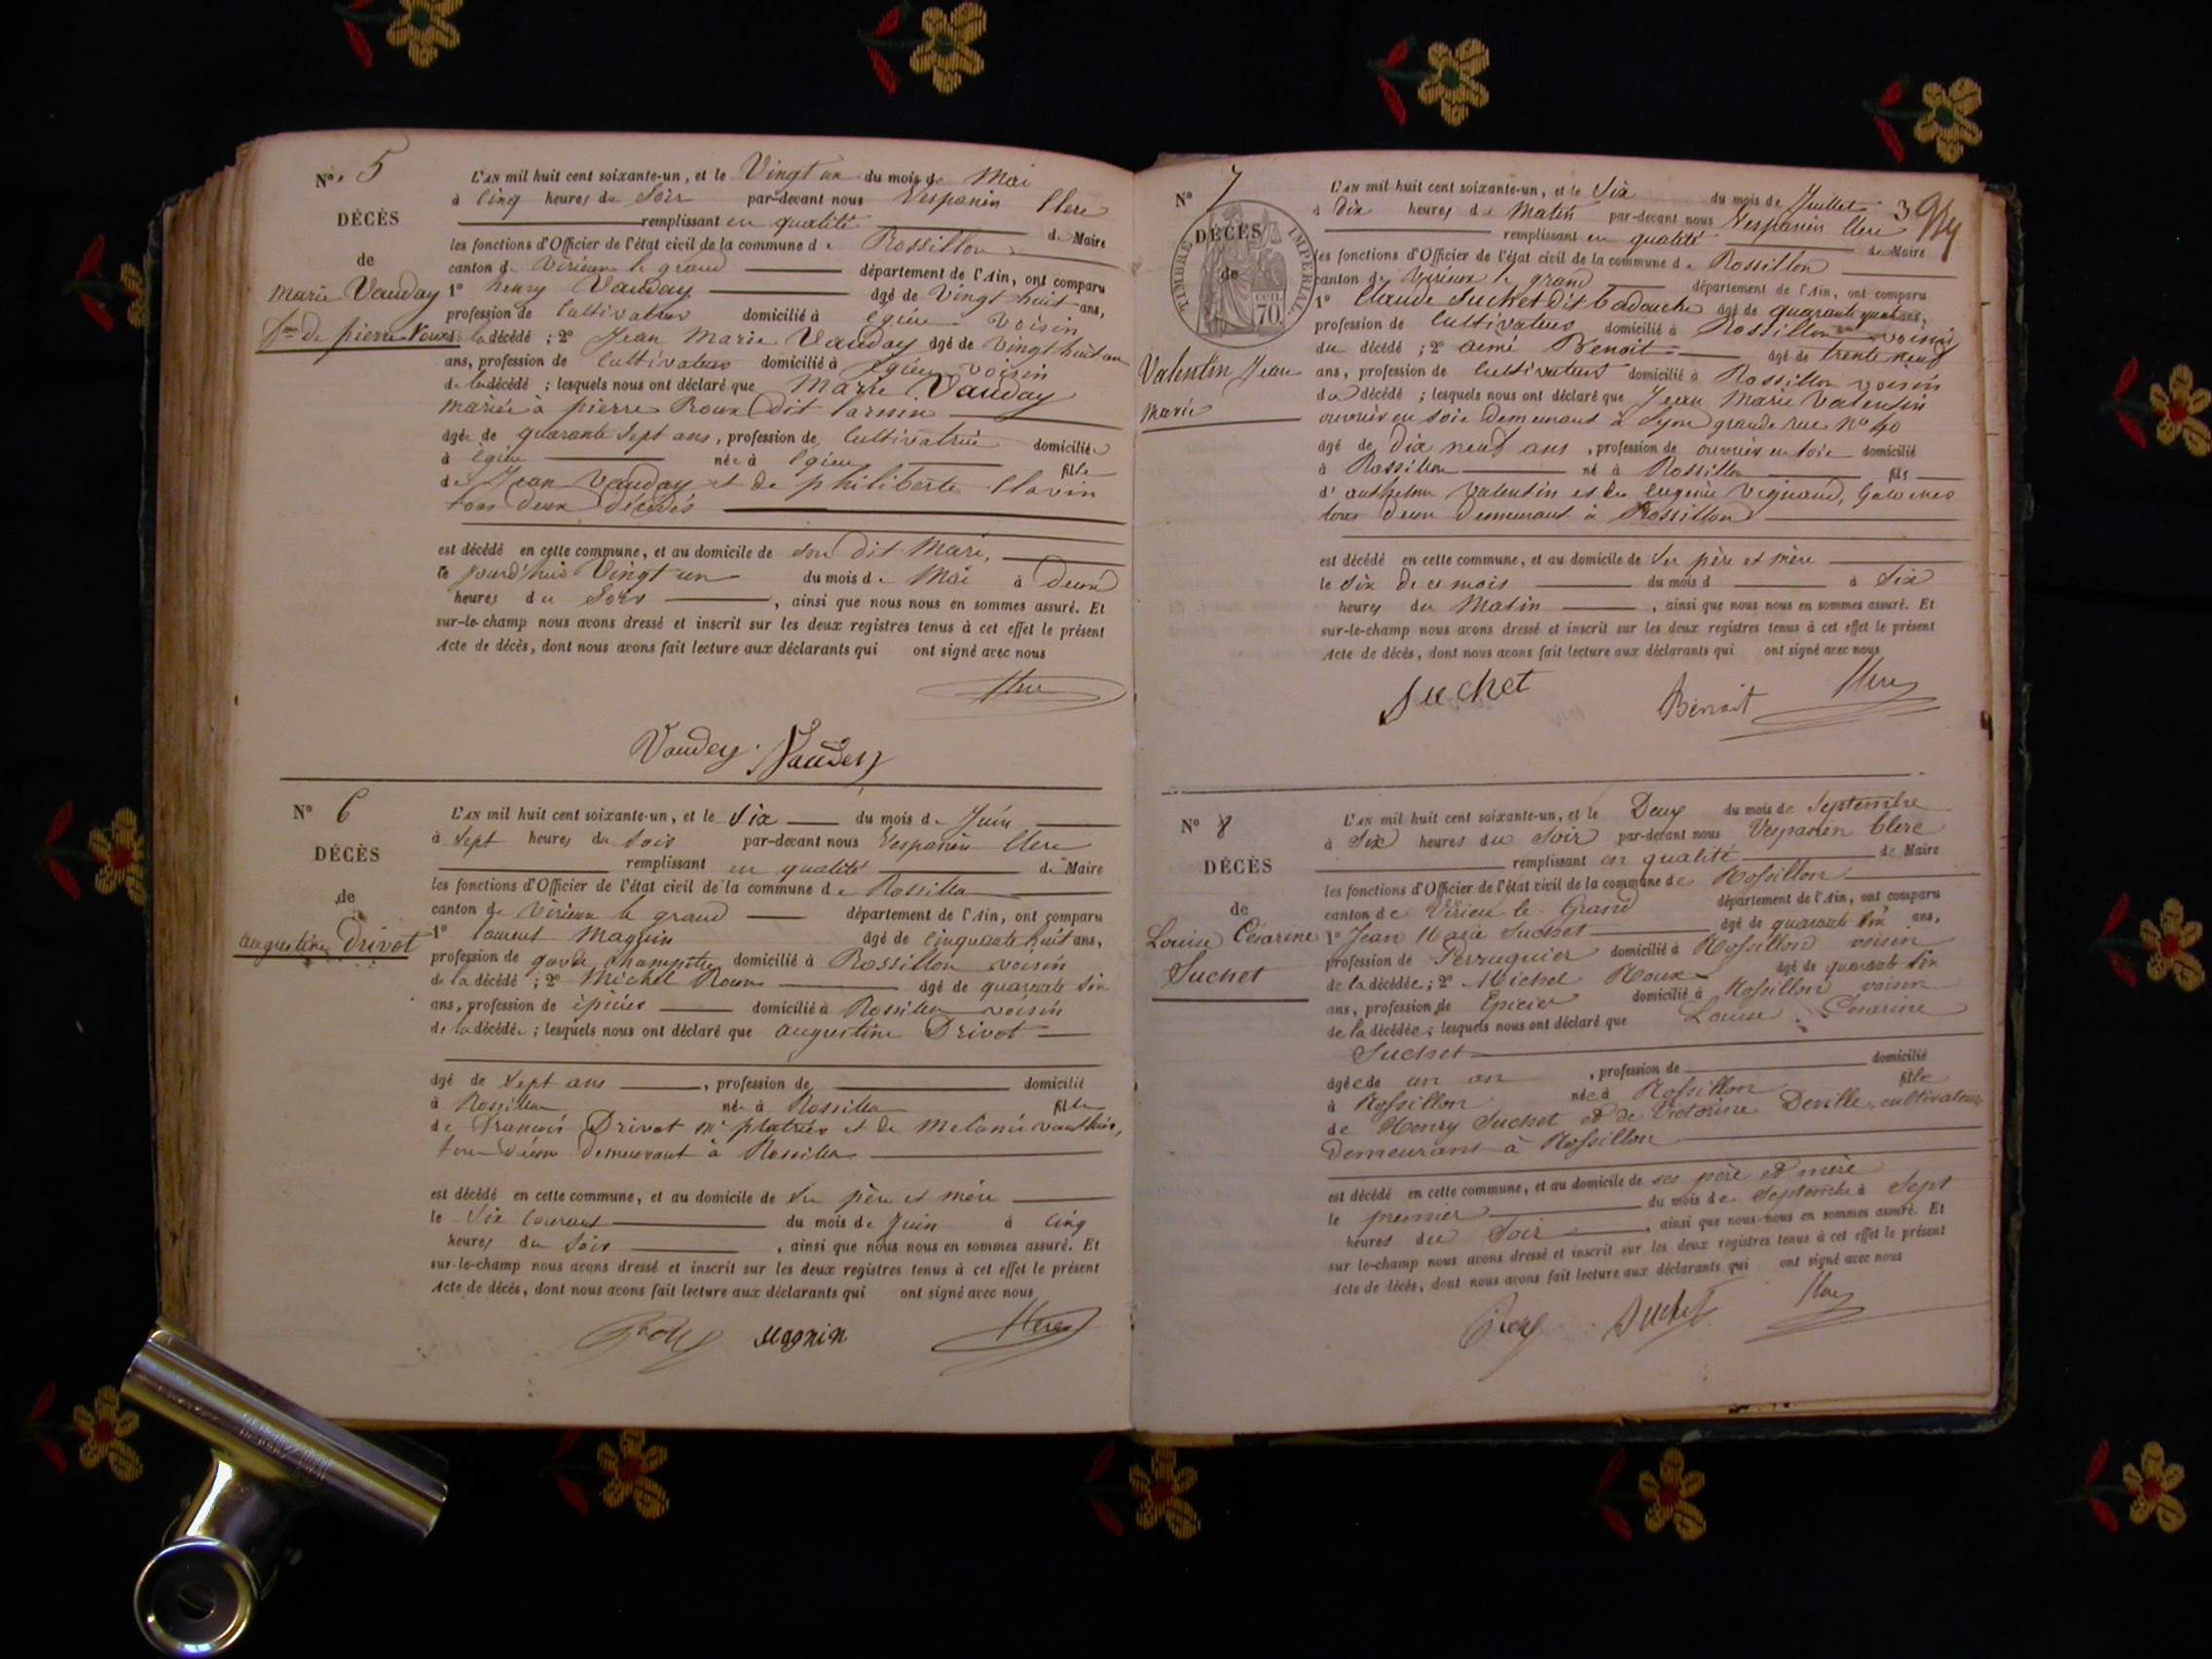 N° 5
DÉCÈS
de
Marie Vauday
fme de pierre Roux
L'AN mil huit cent soixante-un, et le Vingt un du mois de Mai
à Cinq heures du Soir par-devant nous Vespasien Clerc
remplissant en qualité de Maire
les fonctions d'Officier de l'état civil de la commune de Rossillon
canton de Virieux le grand département de l'Ain, ont comparu
1° henry Vauday âgé de Vingt huit ans,
profession de Cultivateur domicilié à Egieu voisin
de la décédé ; 2° Jean Marie Vauday âgé de Vingt huit
ans, profession de Cultivateur domicilié à Egieu voisin
de la décédé ; lesquels nous ont déclaré que Marie Vauday
mariée à pierre Roux dit
âgé de quarante Sept ans, profession de Cultivatrice domicilié
à Egieu née à Egieu fille
de Jean Vauday et de philiberte Clavin
tous deux décédés
est décédé en cette commune, et au domicile de Son dit Mari,
le jourd'hui Vingt un du mois de Mai à deux
heures du Soir , ainsi que nous nous en sommes assuré. Et
sur-le-champ nous avons dressé et inscrit sur les deux registres tenus à cet effet le présent
Acte de décès, dont nous avons fait lecture aux déclarants qui ont signé avec nous
Clerc
Vaudey Vaudey
N° 6
DÉCÈS
de
augustine Drivot
L'AN mil huit cent soixante-un, et le Six du mois de Juin
à Sept heures du Soir par-devant nous Vespasien Clerc
remplissant en qualité de Maire
les fonctions d'Officier de l'état civil de la commune de Rossillon
canton de Virieux le grand département de l'Ain, ont comparu
1° Laurent Magnin âgé de Cinquante huit ans,
profession de garde Champêtre domicilié à Rossillon voisin
de la décédé ; 2° Michel Roux âgé de quarante Six
ans, profession de épicier domicilié à Rossillon voisin
de la décédée ; lesquels nous ont déclaré que augustine Drivot
âgé de Sept ans , profession de domicilié
à Rossillon née à Rossillon fille
de François Drivot Me platrier et de Melanie
tous deux demeurant à Rossillon
est décédé en cette commune, et au domicile de Ses père et mère
le Six Courant du mois de Juin à Cinq
heures du Soir , ainsi que nous nous en sommes assuré. Et
sur-le-champ nous avons dressé et inscrit sur les deux registres tenus à cet effet le présent
Acte de décès, dont nous avons fait lecture aux déclarants qui ont signé avec nous
Roux Magnin Clerc
N° 7
TIMBRE IMPÉRIAL
70 cen.
DÉCÈS
de
Valentin Jean
Marie
L'AN mil huit cent soixante-un, et le Six du mois de Juillet 3
à Dix heures du Matin par-devant nous Vespasien Clerc
remplissant en qualité de Maire
les fonctions d'Officier de l'état civil de la commune de Rossillon
canton de Virieux le grand département de l'Ain, ont comparu
1° Claude Suchet dit Cadouche âgé de quarante quat ans,
profession de Cultivateur domicilié à Rossillon voisin
du décédé ; 2° aimé Benoit âgé de trente neuf
ans, profession de Cultivateur domicilié à Rossillon voisin
du décédé ; lesquels nous ont déclaré que Jean Marie Valentin
ouvrier en soie demeurant à Lyon grande rue N° 40
âgé de dix neuf ans , profession de ouvrier en soie domicilié
à Rossillon né à Rossillon fils
d'anthelme Valentin et de Eugénie
tous deux demeurant à Rossillon
est décédé en cette commune, et au domicile de Ses père et mère
le Six de ce mois du mois d à Six
heures du Matin , ainsi que nous nous en sommes assuré. Et
sur-le-champ nous avons dressé et inscrit sur les deux registres tenus à cet effet le présent
Acte de décès, dont nous avons fait lecture aux déclarants qui ont signé avec nous
Suchet Benoit Clerc
N° 8
DÉCÈS
de
Louise Césarine
Suchet
L'AN mil huit cent soixante-un, et le Deux du mois de Septembre
à Six heures du Soir par-devant nous Vespasien Clerc
remplissant en qualité de Maire
les fonctions d'Officier de l'état civil de la commune de Rossillon
canton de Virieu le Grand département de l'Ain, ont comparu
1° Jean Marie Suchet âgé de quarante six ans,
profession de Perruquier domicilié à Rossillon voisin
de la décédée ; 2° Michel Roux âgé de quarante six
ans, profession de Epicier domicilié à Rossillon voisin
de la décédée ; lesquels nous ont déclaré que Louise Césarine
Suchet
âgée de un an , profession de domicilié
à Rossillon née à Rossillon fille
de Henry Suchet et de Victorine Deville, cultivateurs
demeurant à Rossillon
est décédé en cette commune, et au domicile de ses père et mère
le premier du mois de Septembre à Sept
heures du Soir , ainsi que nous nous en sommes assuré. Et
sur le-champ nous avons dressé et inscrit sur les deux registres tenus à cet effet le présent
Acte de décès, dont nous avons fait lecture aux déclarants qui ont signé avec nous
Roux Suchet Clerc